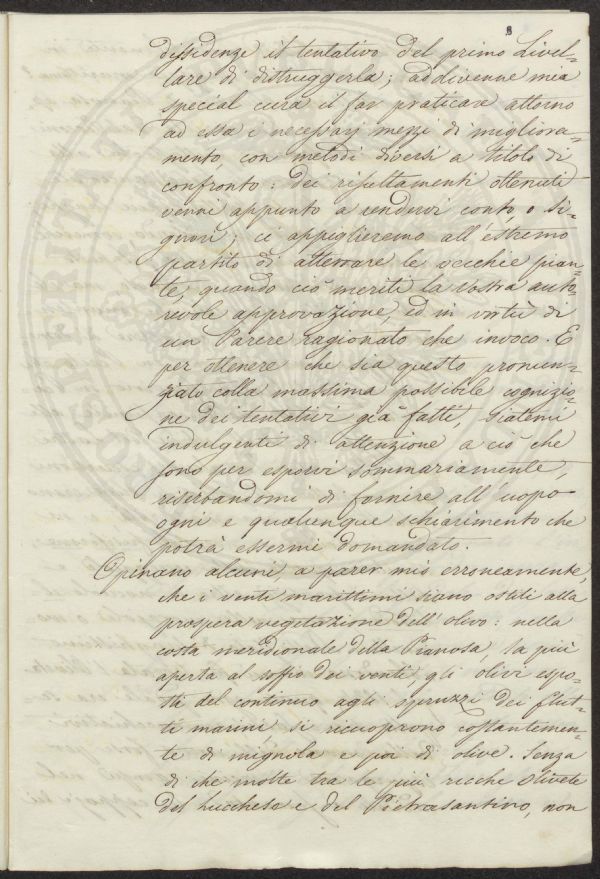 8
dissidenze il tentativo del primo Livel-
lare di distruggerla; addivenne mia
special cura il far praticare attorno
ad essa i necessarj mezzi di migliora-
mento, con metodi diversi a titolo di
confronto: dei risultamenti ottenuti
venni appunto a rendervi conto, o Si-
gnori; ci appiglieremo all'estremo
partito di atterrare le vecchie pian-
te, quando ciò meriti la vostra auto-
revole approvazione, ed in virtù di
un Parere ragionato che invoco. E
per ottenere che sia questo pronun-
ziato colla massima possibile cognizio-
ne dei tentativi già fatti, siatemi
indulgenti di attenzione a ciò che
sono per esporvi sommariamente,
riserbandomi di fornire all'uopo
ogni e qualunque schiarimento che
potrà essermi domandato.
Opinano alcuni, a parer mio erroneamente,
che i venti marittimi siano ostili alla
prospera vegetazione dell'olivo: nella
costa meridionale della Pianosa, la più
aperta al soffio dei venti, gli olivi espo-
sti del continuo agli spruzzi dei flut-
ti marini, si ricuoprono costantemen-
te di mignola e poi di olive. Senza
di che molte tra le più ricche olivete
del Lucchese e del Pietrasantino, non